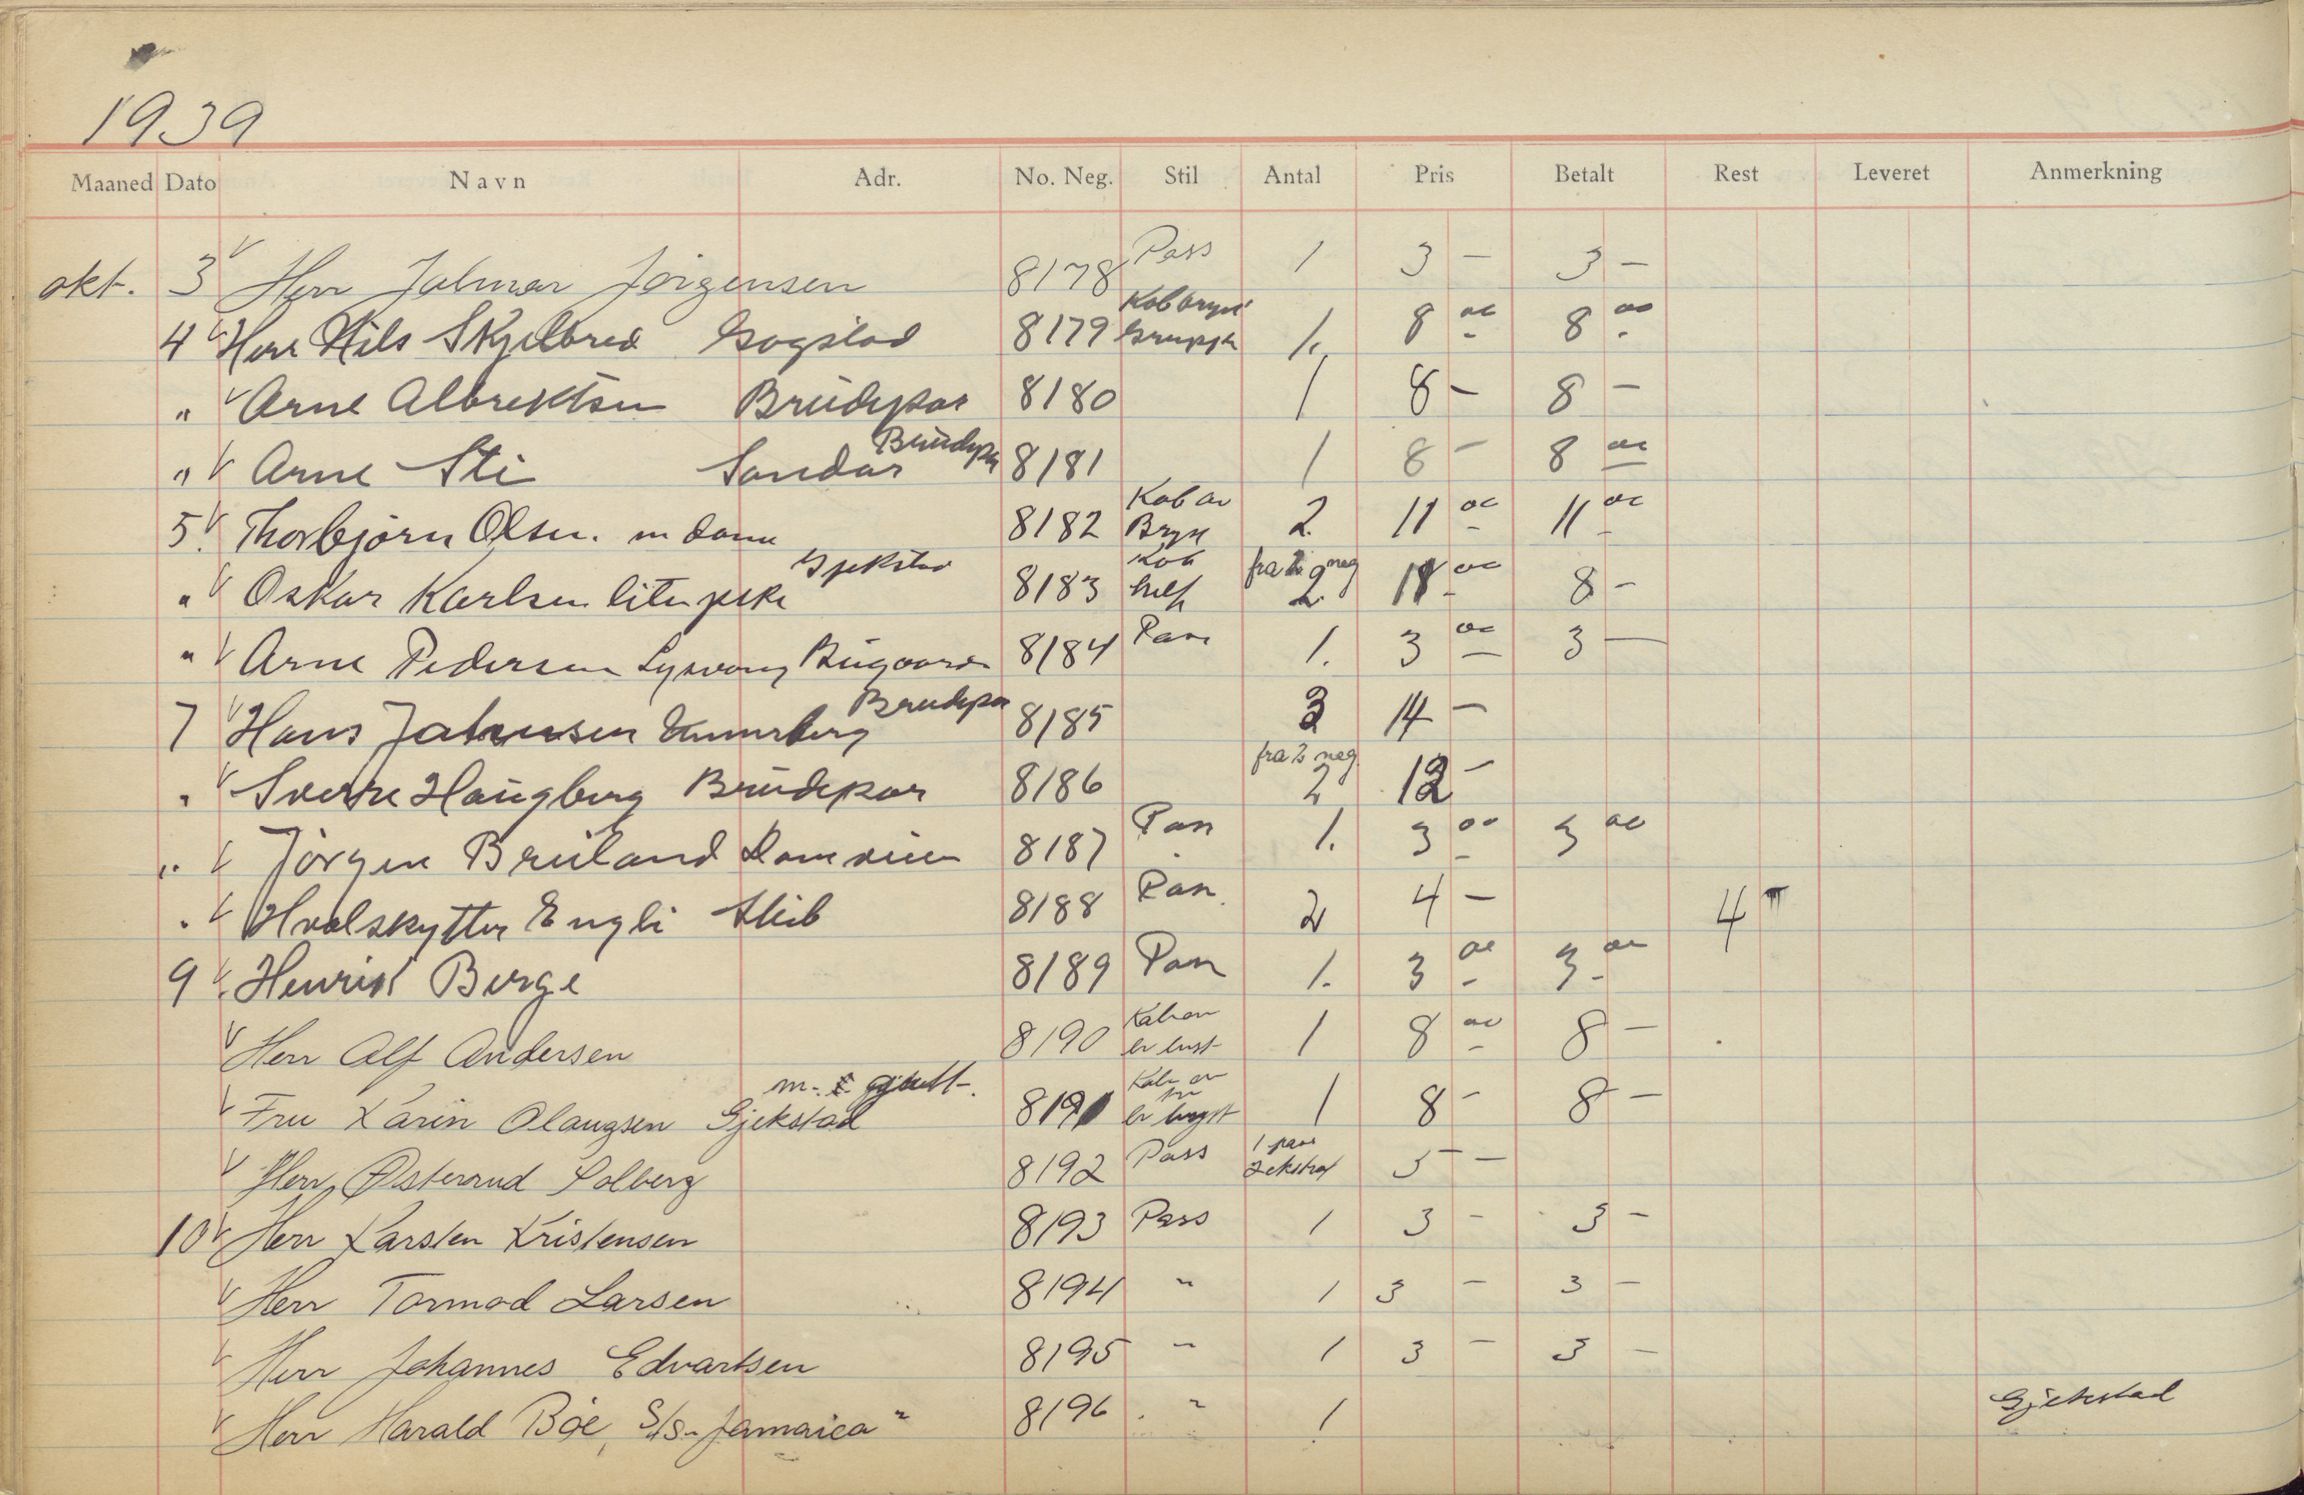 1939
Maaned Dato Navn Adr. No. Neg. Stil Antal Pris Betalt Rest Leveret Anmerkning
okt. 3 Herr Jalmar Jörgensen 8178 Pass 1 3 - 3 -
4 Herr Nils Skjelbred Gogstad 8179 Kab bryst Gruppe 1. 8 00 8 00
" Arne Albrektsen Brudepar 8180 1 8 - 8 -
" Arne Sti Sandar Brudepar 8181 1 8 - 8 00
5. Thorbjörn Olsen. m dame 8182 Kab av Bryst 2 11 00 11 00
" Oskar Karlsen liten pike Gjekstad 8183 Kab fra 2 neg 2 18 00 8 -
" Arne Pedersen Bugaarden 8184 Pass 1. 3 00 3 -
7 Hans Johnsen Brudepar 8185 3 14 -
" Sverre Haugberg Brudepar 8186 fra 2 neg. 2 12 -
" Jörgen Bruland 8187 Pass 1. 3 00 3 00
" Hvalskytter Engli 8188 Pass. 2 4 - 4 -
9 Henrik Berge 8189 Pass 1. 3 00 3 00
Herr Alf Andersen 8190 1 8 00 8 -
Fru Karin Olaugsen Gjekstad m. gutt. 8191 1 8 - 8 -
Herr Østerrud Solberg 8192 Pass 1 pass 2 ekstra 5 -
10 Herr Karsten Kristensen 8193 Pass 1 3 - 3 -
Herr Tormod Larsen 8194 " 1 3 - 3 -
Herr Johannes Edvartsen 8195 " 1 3 - 3 -
Herr Harald Böe, S/S "Jamaica" 8196 " 1 Gjekstad